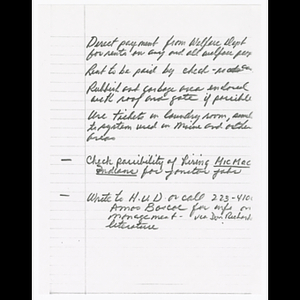 Direct payment from Welfare Dept
for rents on any and all welfare
Rent to be paid by check
Rubbish and garbage area enclosed
with roof and gate if possible
Use Tickets in laundry room,
to system used in
areas
Check possibility of hiring MicMac
Indians for janitor jobs
Write to H.U.D. or call 223-410
Amos Boscoe for info on
management - via Don
literature